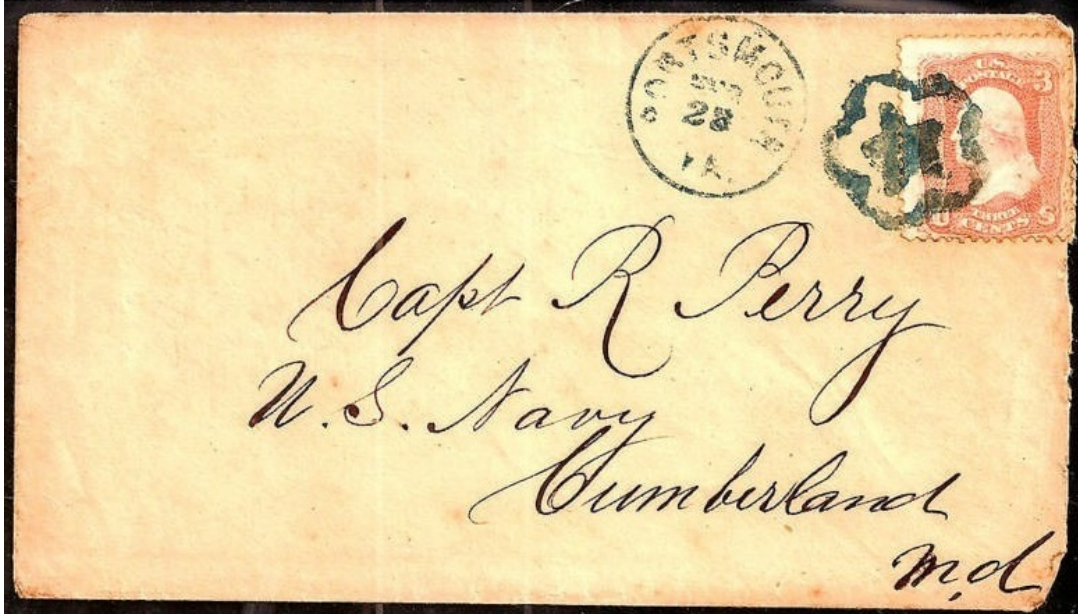 PORTSMOUTH
28
VA.
U.S.
POSTAGE
3
THREE
CENTS
U S
Capt R Perry
U.S. Navy
Cumberland
M,d